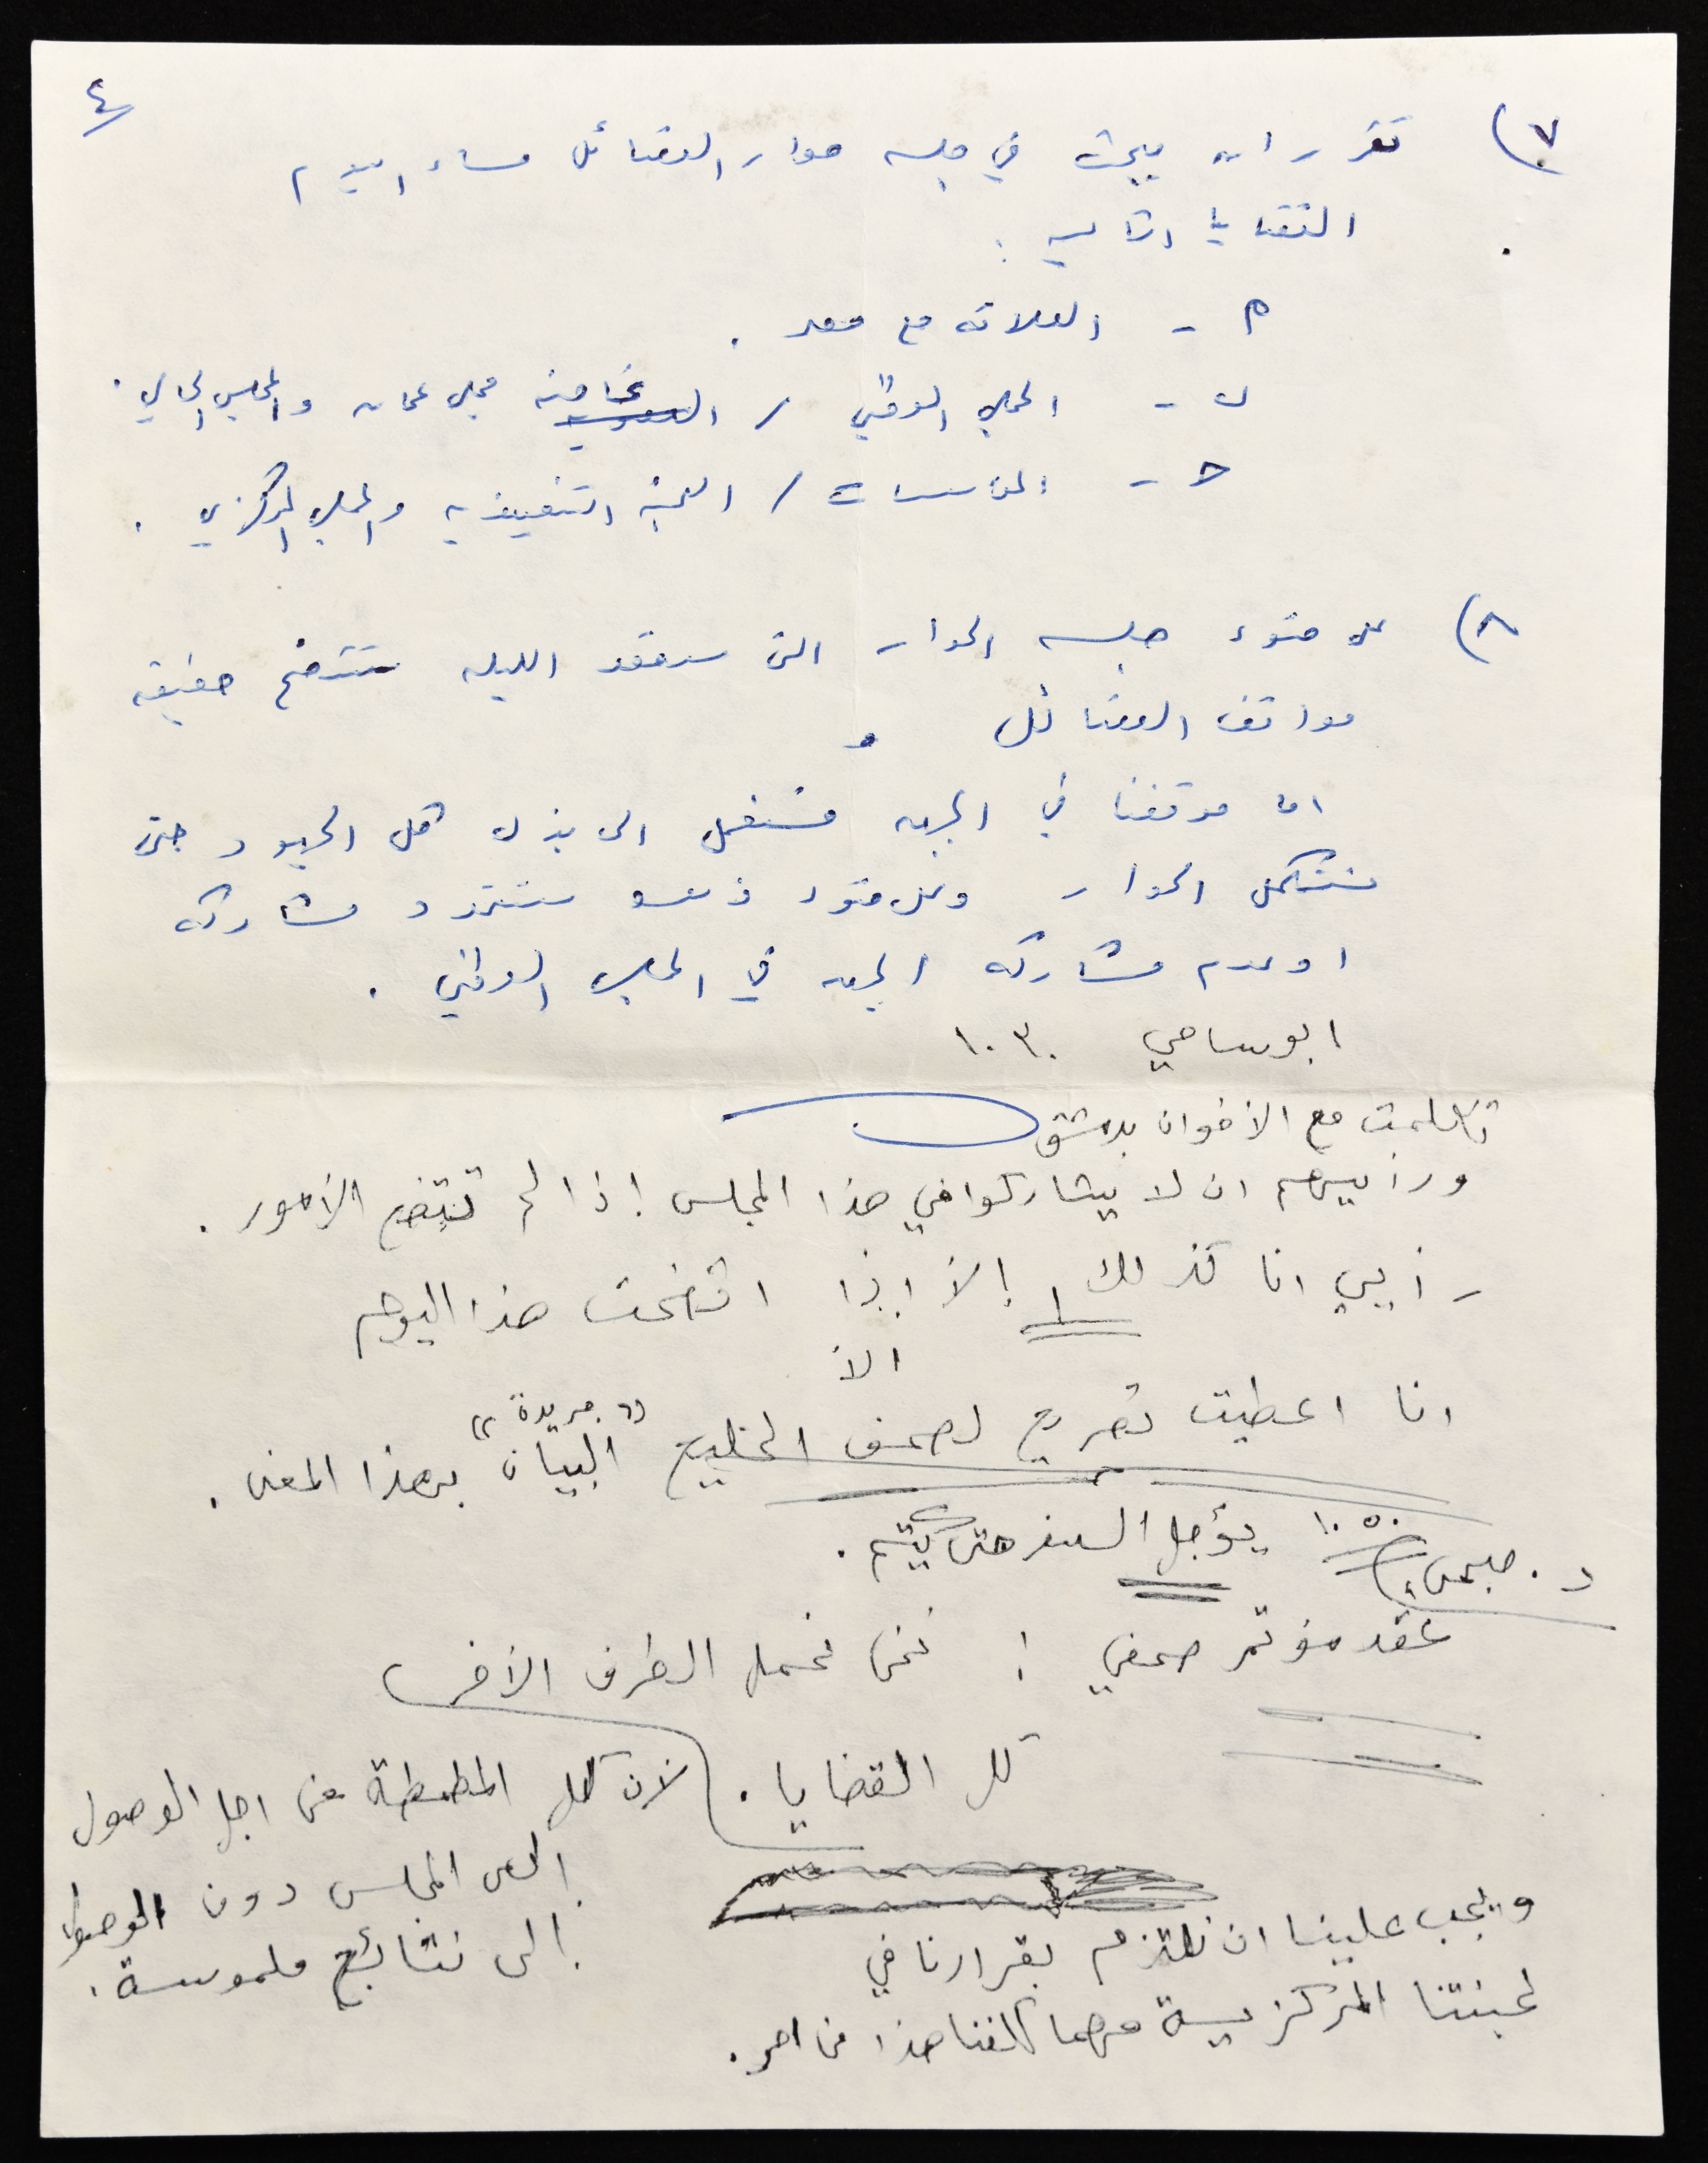 ٤
٧) تقرر ان يبحث في جلسه حوار الفصائل مساء اليوم
القضايا التاليه :
أ - العلاقه مع مصر .
ب - المجلس الوطني / مجلس عمان والمجلس الحالي .
ج - المؤسسات / اللجنه التنفيذيه والمجلس المركزي .
٨) على ضوء جلسه الحوار التي ستعقد الليله ستتضح حقيقه
مواقف الفصائل .
اما موقفنا في الجبهه فسنعمل الى بذل كل الجهود حتى
نستكمل الحوار وعلى ضوء ذلك ستتحدد مشاركه
او عدم مشاركه الجبهه في المجلس الوطني .
ابو سامي ١٠٣٠
تكلمت مع الأخوان بدمشق
ورأيهم ان لا يشاركوا في هذا المجلس إذا لم تتضح الأمور .
رأيي انا كذلك إلا إذا اتضحت هذا اليوم
الا
انا اعطيت تصريح لصحف الخليج "جريدة" "البيان" بهذا المعنى .
د. صبحي ١٠٥٠ يؤجل السفر حتى يتم .
عقد مؤتمر صحفي ! نحن نحمل الطرف الأخر
كل القضايا . لأن كل المطمطة من اجل الوصول
الى المجلس دون الوصول
الى نتائج ملموسة .
ويجب علينا ان نلتزم بقرارنا في
لجنتنا المركزية مهما كلفنا هذا من امر .